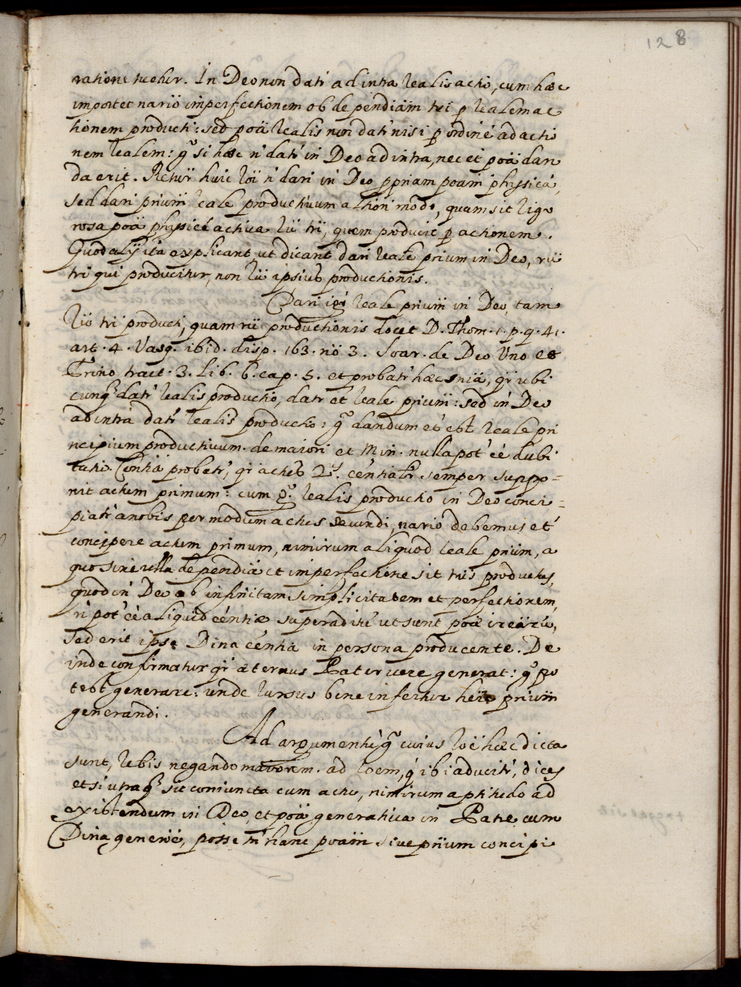 128
ratione tuetur. In Deo non dati ad intra realis actio, cum hæc
importet nario imperfectionem ob dependiam tri p realem ac
tionem producti: sed poã realis non dat' nisi p ordinẽ ad actio
nem realem: gº si hæc n̄ dat' in Deo ad intra, nec et poã dan
da erit. Retur huic roi n̄ dari in Deo ppriam poam physicã,
sed dari prium reale productiuum aliori modo, quam sit rigo
rosa poã physicé actiua rũ tri, quem producit p actionem.
Quod alij ita explicant ut dicant dari reale prium in Deo, rũ
tri qui producitur, non rũ ipsius productionis.
Dari ipi reale prium in Deo tam
rũ tri producti, quam rũ productionis docet D. Thom. 1. p. q. 41.
art. 4. Vasq. ibid. disp. 163. nõ 3. Soar. de Deo Uno et
Trino tract. 3. Lib. 6. cap. 5. et probatr hæc sniã, qr ubi
cunq dat' realis productio, datr et reale prium: sed in Deo
ad intra dat' realis productio: gº dandum et est reale pri
ncipium productiuum. de maiori et Min. nulla pot' eé dubi
tatio. Centia probatr, qr actus 2.º centiatr. semper suppo-
nit actum primum: cum gº realis productio in Deo conci-
piatr a nobis per modum actus secundi, nario debemus et
concipere actum primum, nimirum aliquod reale prium, a
quo sine ulla dependiã et imperfectione sit trūs productus,
quod in Deo ob infinitam simplicitatem et perfectionem,
n̄ pot' eé aliquid centiæ superaditũ ut sunt poã creatæ,
sed erit ipsa Dina centia in persona producente. De
inde confirmatur qr æternus Pater vere generat: gº po
test generare: unde rursus bene infertur hére prium
generandi.
Ad argumentũ, gº cuius roẽ hæc dicta
sunt, rebis negando maiorem. ad roem, q ibi aducitr, dices
etsi utraq sit coniuncta cum actu, nimirum aptitudo ad
existendum in Deo, et poã generatiua in Patre cum
Dina genere, posse tn̄ hanc poam siue prium concipi